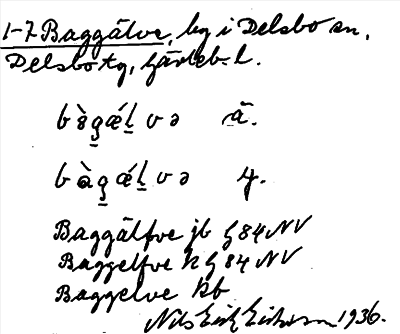 1-7 Baggälve, by i Delsbo sn,
Delsbo tg, Gävleb. l.
ä.
y.
Baggälfve jb § 84 NV
Baggelfve k § 84 NV
Baggelve kb
Nils Erik Eriksson 1936.